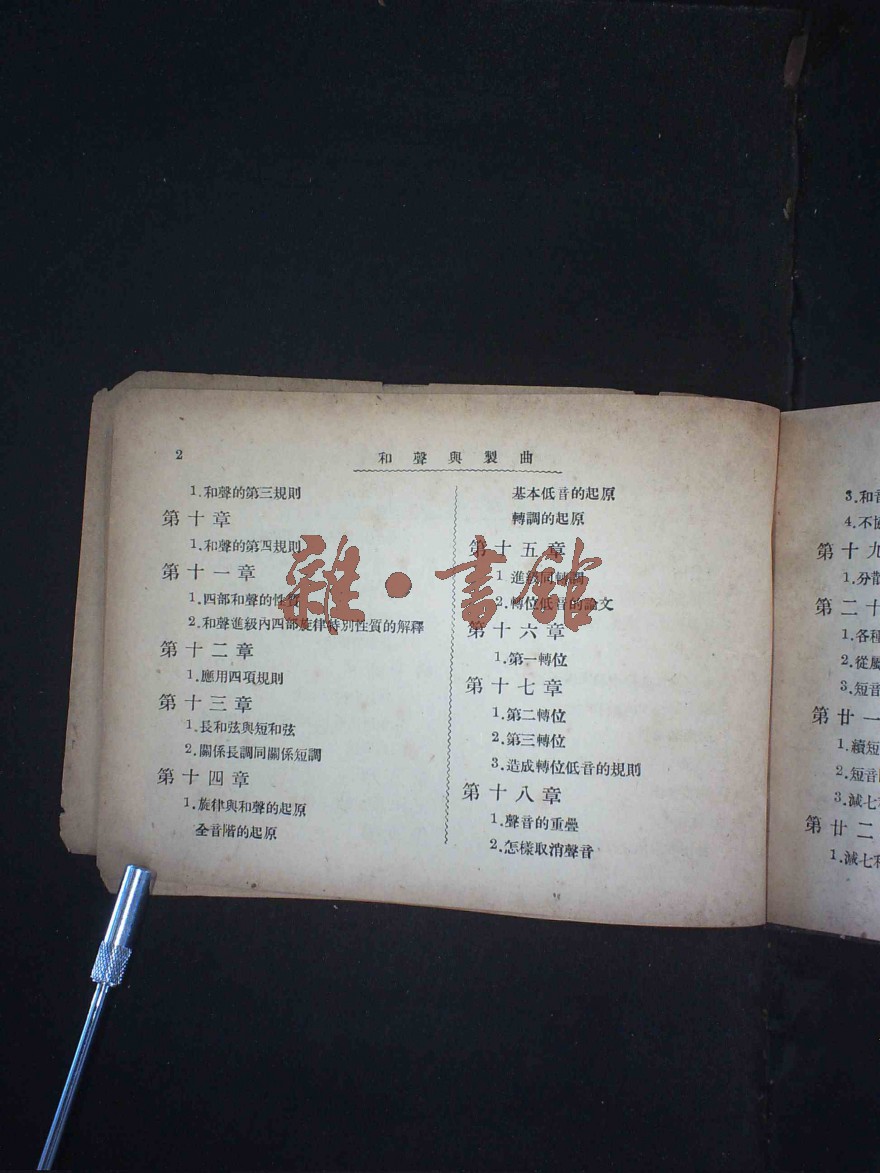 2
和聲與製曲
1.和聲的第三規則
第十章
1.和聲的第四規則
第十一章
1.四部和聲的性質
2.和聲進級內四部旋律特別性質的解釋
第十二章
1.應用四項規則
第十三章
1.長和弦與短和弦
2.關係長調同關係短調
第十四章
1.旋律與和聲的起原
全音階的起原
基本低音的起原
轉調的起原
第十五章
1 進級同轉調
2.轉位低音的論文
第十六章
1.第一轉位
第十七章
1.第二轉位
2.第三轉位
3.造成轉位低音的規則
第十八章
1.聲音的重疊
2.怎樣取消聲音
3.和音
4.不協
第十九
1.分散
第二十
1.各種
2.從屬
3.短音
第廿一
1.續短
2.短音階
3.減七和
第廿二
1.減七和
雜·書館